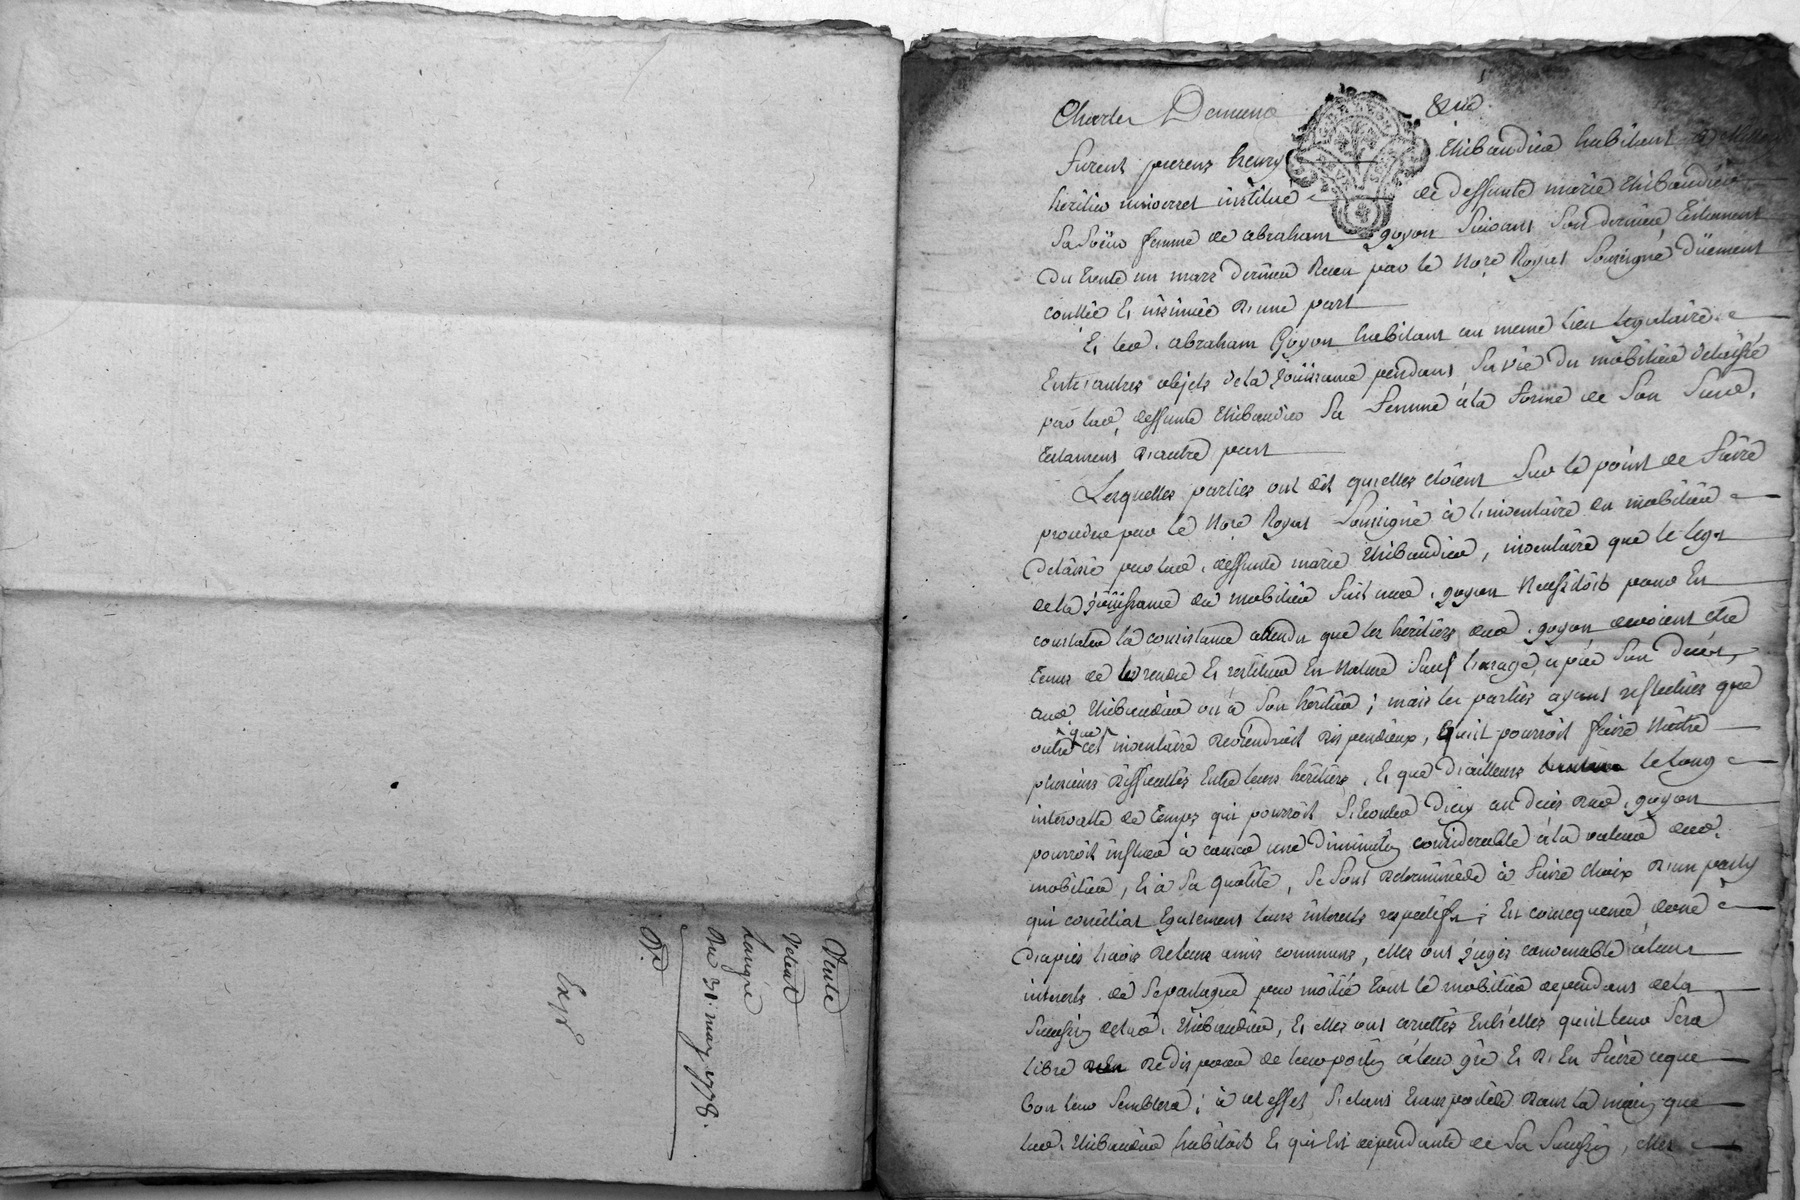 Vente
Veland
Langre
Du 31. may 1778.
Exp.
furent presens henry thibaudier habitant
héritier universel institué de deffunte marie thibaudier
Sa Soeur femme de abraham goyon Suivant Son dernier testament
du trente un mars dernier Receu par le Nore Royal Soussigné düement
conllé et insinüé d'une part
Et led. abraham Goyon habitant au meme lieu legataire
Entr'autres objets de la joüissance pendant Sa vie du mobilier delaissé
par lad. deffunte thibaudier Sa femme à la forme de Son Susd.
testament d'autre part
Lesquelles parties ont dit qu'elles étoient Sur le point de faire
proceder par le Nore Royal Soussigné à l'inventaire du mobilier
delaissé par lad. deffunte marie thibaudier, inventaire que le legs
de la joüissance du mobilier fait aud. goyon Necessitoit pour En
constater la consistance attendu que les héritiers dud. goyon devoient etre
tenus de le rendre Et restituer En Nature Sauf l'usage après Son decès,
aud. thibaudier ou à Son héritier; mais les parties ayant reflechies que
outre que cet inventaire deviendroit dispendieux, qu'il pourroit faire Naitre
plusieurs difficultés Entre leurs héritiers, Et que d'ailleurs le long
intervalle de temps qui pourroit S'écouler d'icy au decès dud. goyon
pourroit influer à causer une diminution considerable à la valeur dud.
mobilier, Et à Sa qualité, Se Sont determinées à faire choix d'un party
qui conciliat Egalement leurs interets respectifs; En consequence
d'apres l'avis de leurs amis communs, elles ont jugés convenable à leurs
interets de Se partager par moitié tout le mobilier dependant de la
Succession de lad. thibaudier, Et elles ont arrettés Entr'elles qu'il leur Sera
libre de disposer de leur portion à leur gré Et d'En faire ce que
bon leur Semblera; à cet effet S'etant transportées dans la maison que
lad. thibaudier habitoit Et qui Est dependante de Sa Succession, elles